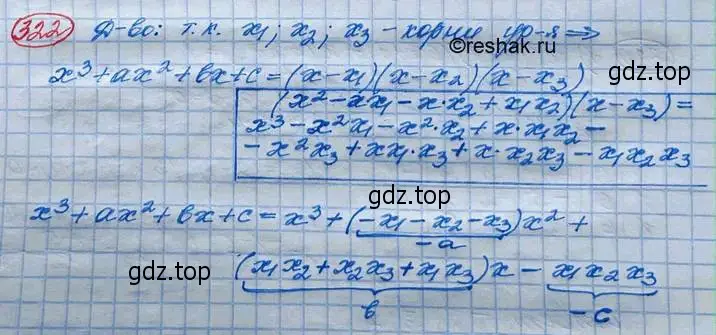 322 Д-во: т.к. x₁; x₂; x₃ - корни ур-я ⇒
©reshak.ru
x³+ax²+bx+c=(x-x₁)(x-x₂)(x-x₃)
gdz.top
(x²-xx₁-x·x₂+x₁x₂)(x-x₃)=
x³-x²x₁-x²·x₂+x·x₁x₂-
-x²x₃+xx₁·x₃+x·x₂x₃-x₁x₂x₃
gdz.top
x³+ax²+bx+c=x³+(-x₁-x₂-x₃)x²+
-a
gdz.top
(x₁x₂+x₂x₃+x₁x₃)x-x₁x₂x₃
b
-c
gdz.top